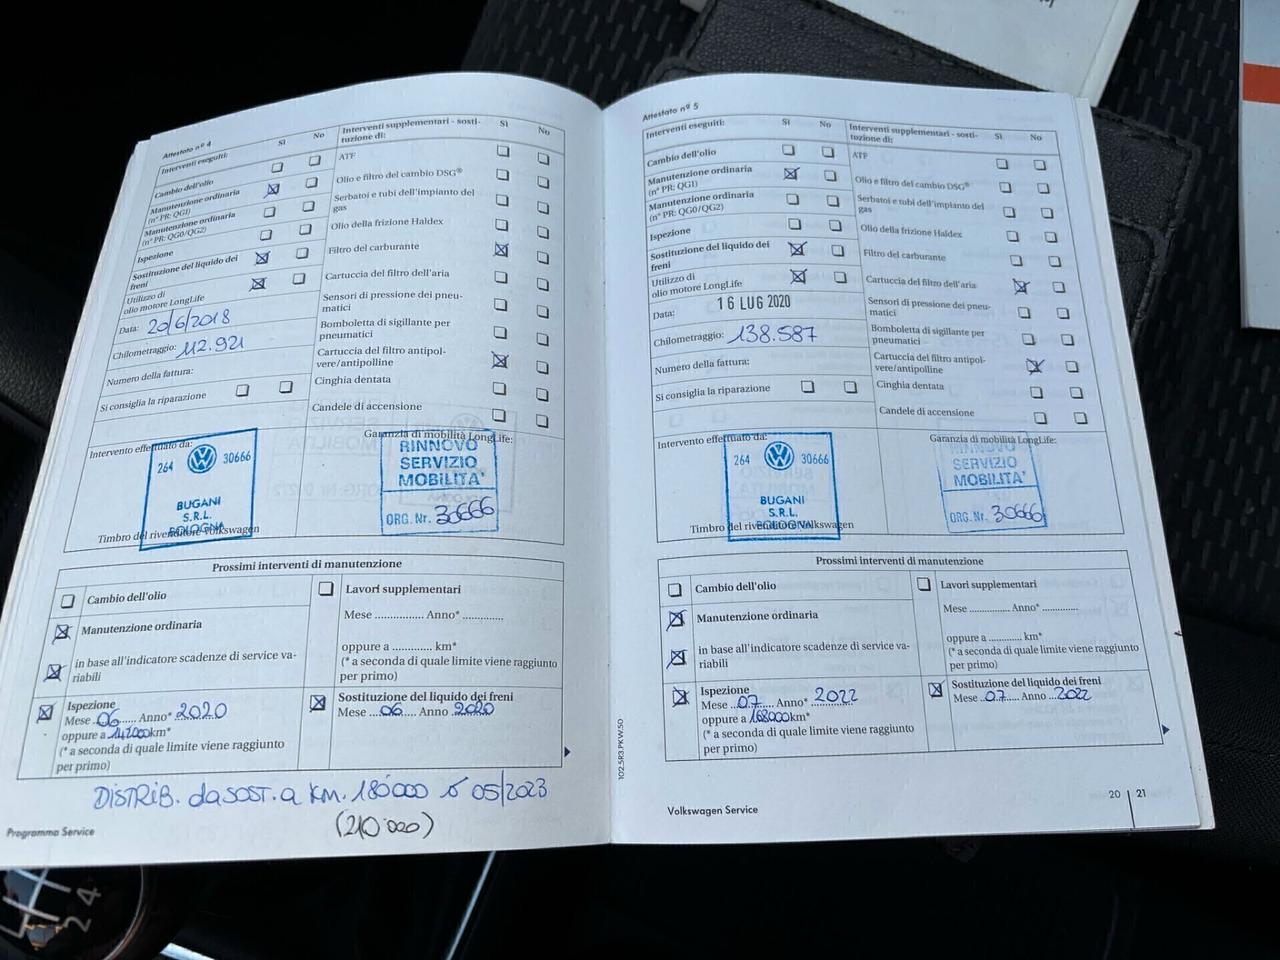 Attestato nº 4
Interventi eseguiti:
Sì
No
Cambio dell'olio
Manutenzione ordinaria
(nº PR: QG1)
Manutenzione ordinaria
(nº PR: QG0/QG2)
Ispezione
Sostituzione del liquido dei
freni
Utilizzo di
olio motore LongLife
Data: 20/6/2018
Chilometraggio: 112.921
Numero della fattura:
Si consiglia la riparazione
Interventi supplementari - sosti-
tuzione di:
Sì
No
ATF
Olio e filtro del cambio DSG®
Serbatoi e tubi dell'impianto del
gas
Olio della frizione Haldex
Filtro del carburante
Cartuccia del filtro dell'aria
Sensori di pressione dei pneu-
matici
Bomboletta di sigillante per
pneumatici
Cartuccia del filtro antipol-
vere/antipolline
Cinghia dentata
Candele di accensione
Intervento effettuato da:
264 30666
BUGANI
S.R.L.
BOLOGNA
Timbro del rivenditore Volkswagen
Garanzia di mobilità LongLife:
RINNOVO
SERVIZIO
MOBILITA'
ORG. Nr. 30666
Prossimi interventi di manutenzione
Cambio dell'olio
Manutenzione ordinaria
in base all'indicatore scadenze di service va-
riabili
Ispezione
Mese ..06...... Anno* 2020
oppure a 142000km*
(* a seconda di quale limite viene raggiunto
per primo)
Lavori supplementari
Mese ................ Anno* .............
oppure a ............ km*
(* a seconda di quale limite viene raggiunto
per primo)
Sostituzione del liquido dei freni
Mese ....06..... Anno 2020
DISTRIB. da SOST. a KM. 180000 o 05/2023
(210.000)
Programma Service
Attestato nº 5
Interventi eseguiti:
Sì
No
Cambio dell'olio
Manutenzione ordinaria
(nº PR: QG1)
Manutenzione ordinaria
(nº PR: QG0/QG2)
Ispezione
Sostituzione del liquido dei
freni
Utilizzo di
olio motore LongLife
Data: 16 LUG 2020
Chilometraggio: 138.587
Numero della fattura:
Si consiglia la riparazione
Interventi supplementari - sosti-
tuzione di:
Sì
No
ATF
Olio e filtro del cambio DSG®
Serbatoi e tubi dell'impianto del
gas
Olio della frizione Haldex
Filtro del carburante
Cartuccia del filtro dell'aria
Sensori di pressione dei pneu-
matici
Bomboletta di sigillante per
pneumatici
Cartuccia del filtro antipol-
vere/antipolline
Cinghia dentata
Candele di accensione
Intervento effettuato da:
264 30666
BUGANI
S.R.L.
BOLOGNA
Timbro del rivenditore Volkswagen
Garanzia di mobilità LongLife:
RINNOVO
SERVIZIO
MOBILITA'
ORG. Nr. 30666
Prossimi interventi di manutenzione
Cambio dell'olio
Manutenzione ordinaria
in base all'indicatore scadenze di service va-
riabili
Ispezione
Mese ...07.... Anno* 2022
oppure a 168000km*
(* a seconda di quale limite viene raggiunto
per primo)
Lavori supplementari
Mese .............. Anno* .............
oppure a ............ km*
(* a seconda di quale limite viene raggiunto
per primo)
Sostituzione del liquido dei freni
Mese ...07..... Anno ...2022
102.5R3.PKW.50
Volkswagen Service
20 21
2 4